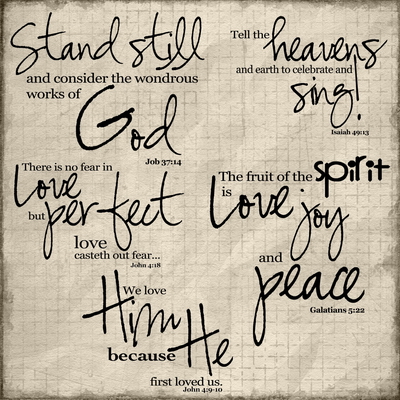 Stand still
and consider the wondrous
works of
God
Job 37:14
Tell the heavens
and earth to celebrate and
sing!
Isaiah 49:13
There is no fear in
Love
but perfect
love
casteth out fear...
John 4:18
The fruit of the spirit
is Love joy
and
peace
Galatians 5:22
We love
Him
because He
first loved us.
John 4:9-10